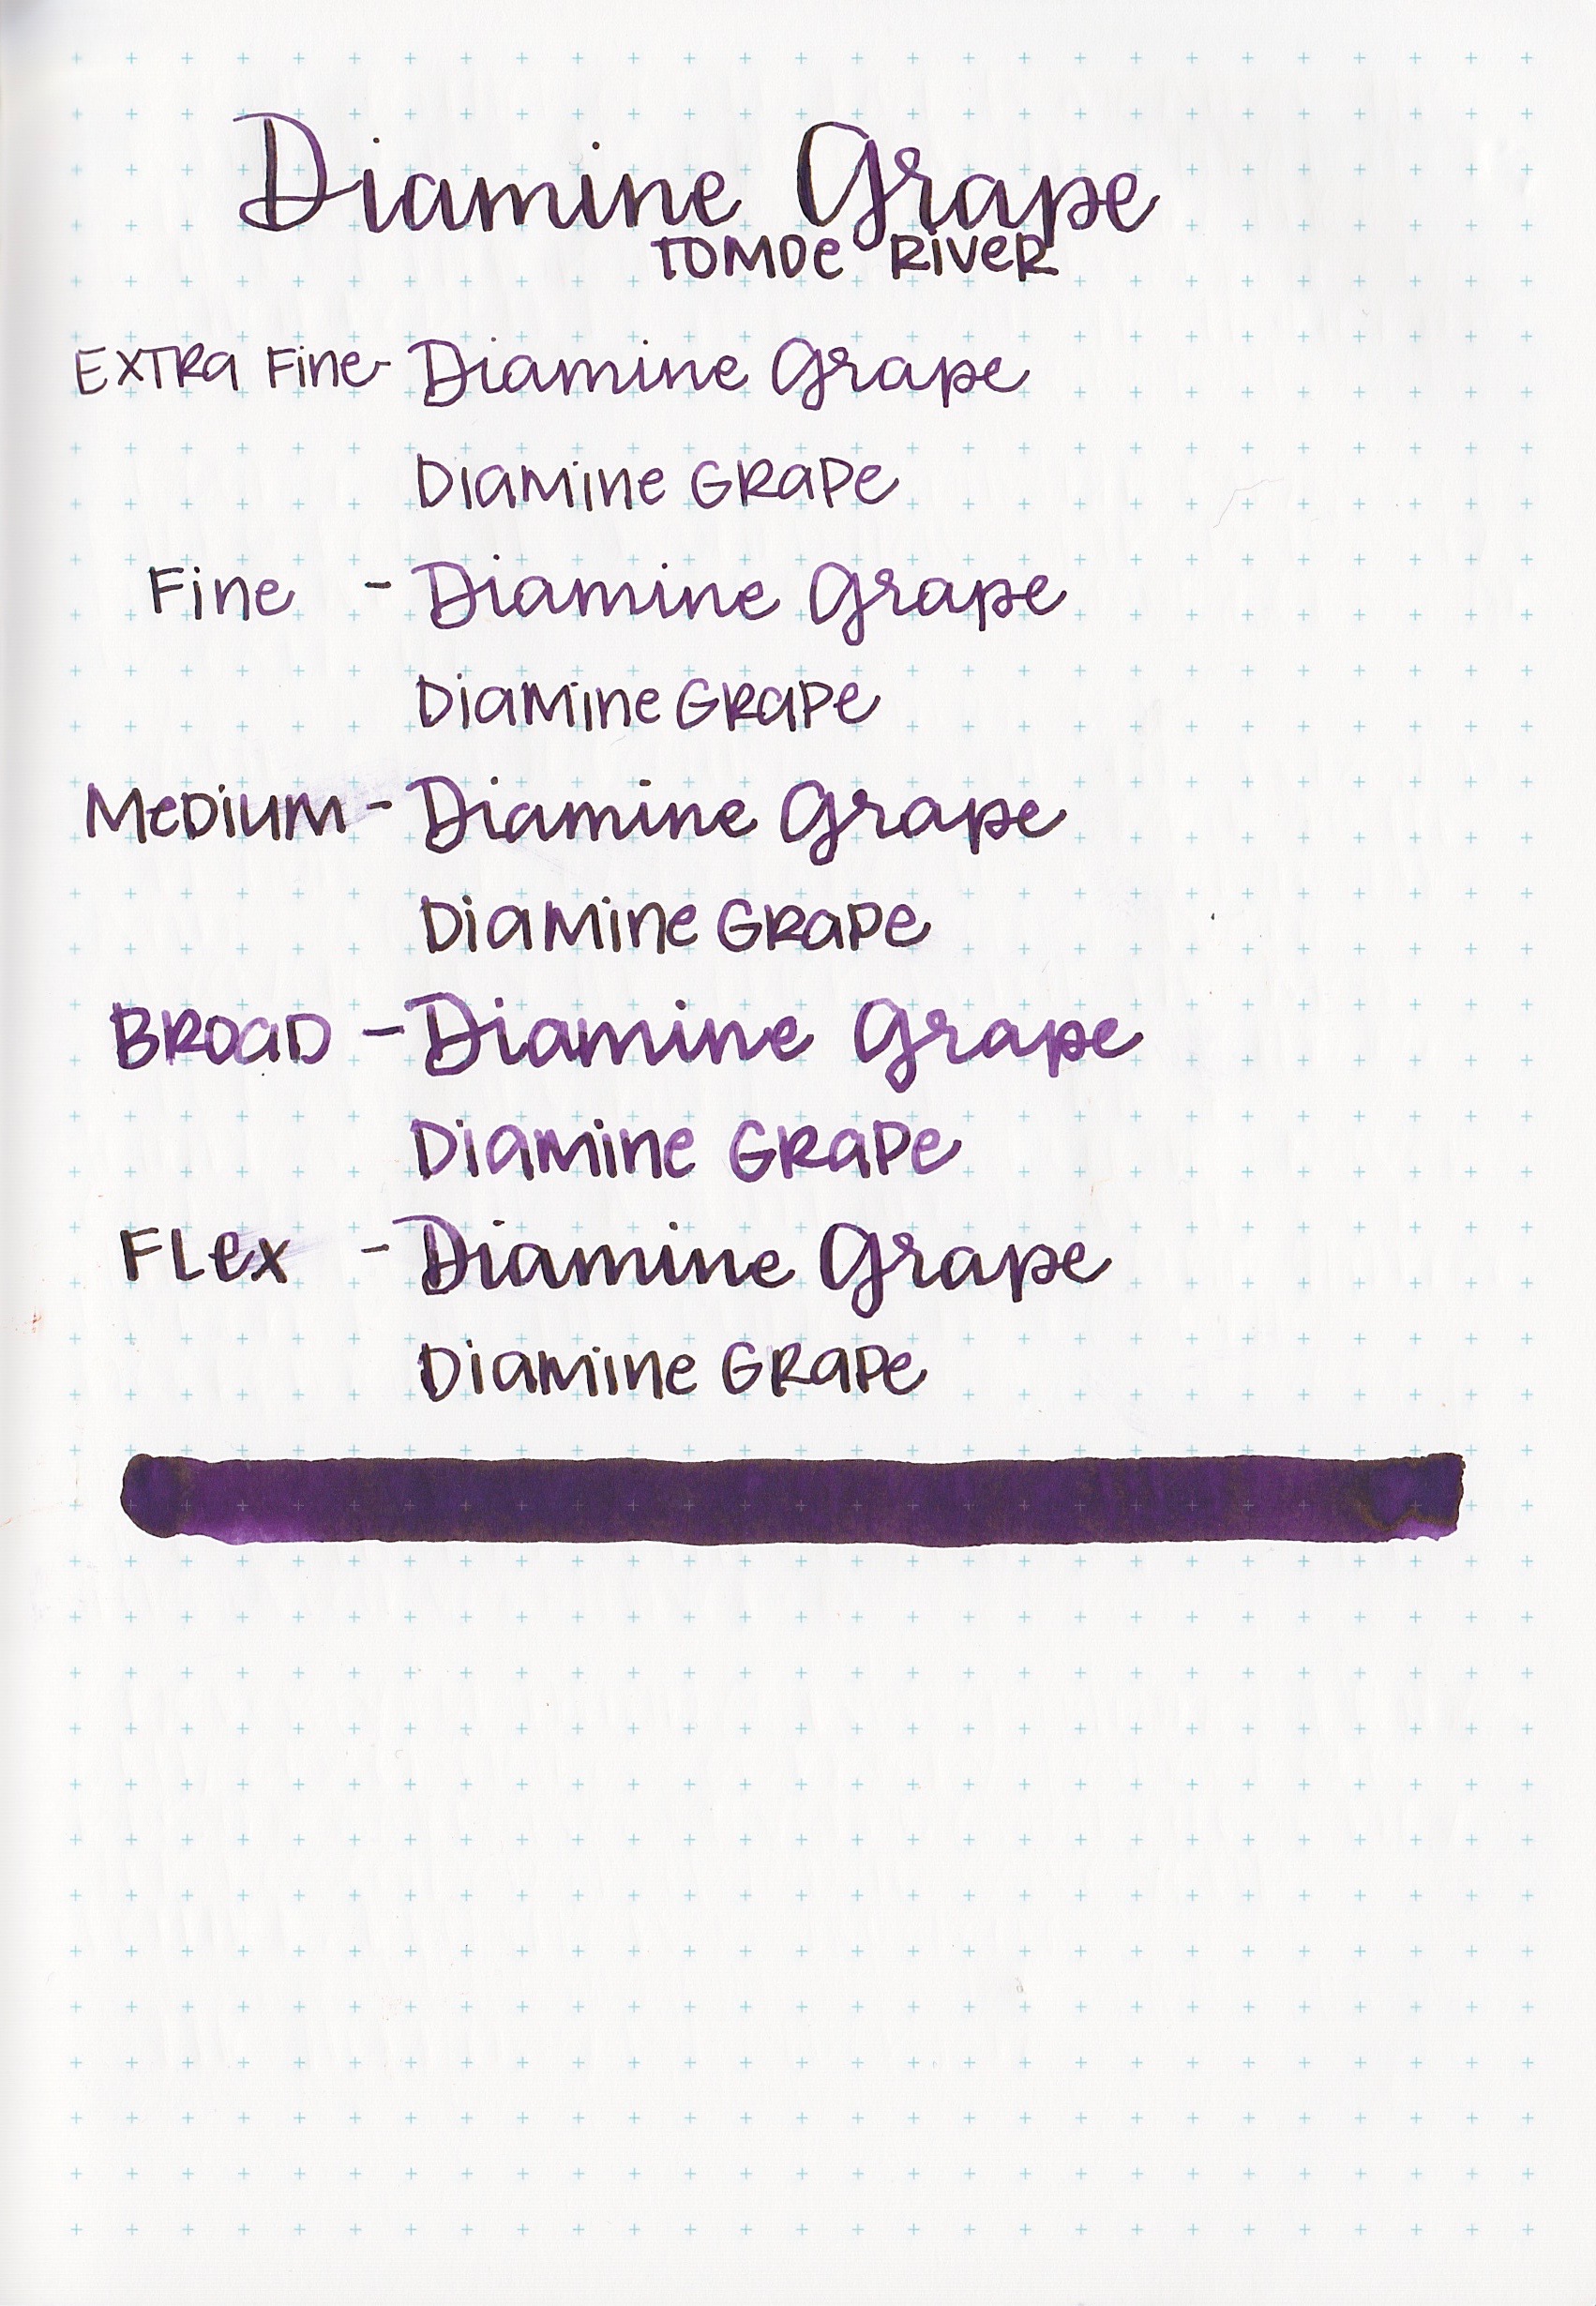 Diamine Grape
TOMOE RIVER
EXTRA FINE - Diamine Grape
DIAMINE GRAPE
FINE - Diamine Grape
DIAMINE GRAPE
MEDIUM - Diamine Grape
DIAMINE GRAPE
BROAD - Diamine Grape
DIAMINE GRAPE
FLEX - Diamine Grape
DIAMINE GRAPE